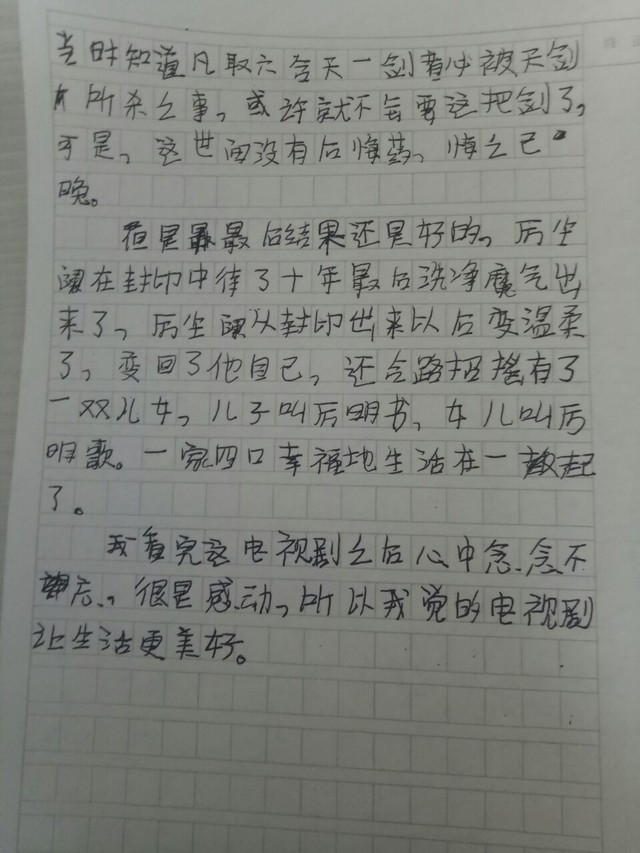 当时知道凡取六合天一剑者必被天剑
所杀之事，或许就不会要这把剑了，
可是，这世间没有后悔药，悔之已
晚。
但是最后结果还是好的，厉生
在封印中待了十年最后洗净魔气出
来了，厉生从封印出来以后变温柔
了，变回了他自己，还会路招摇有了
一双儿女，儿子叫厉明书，女儿叫厉
明歌。一家四口幸福地生活在一起
了。
我看完这电视剧之后心中念念不
忘，很是感动，所以我觉的电视剧
让生活更美好。